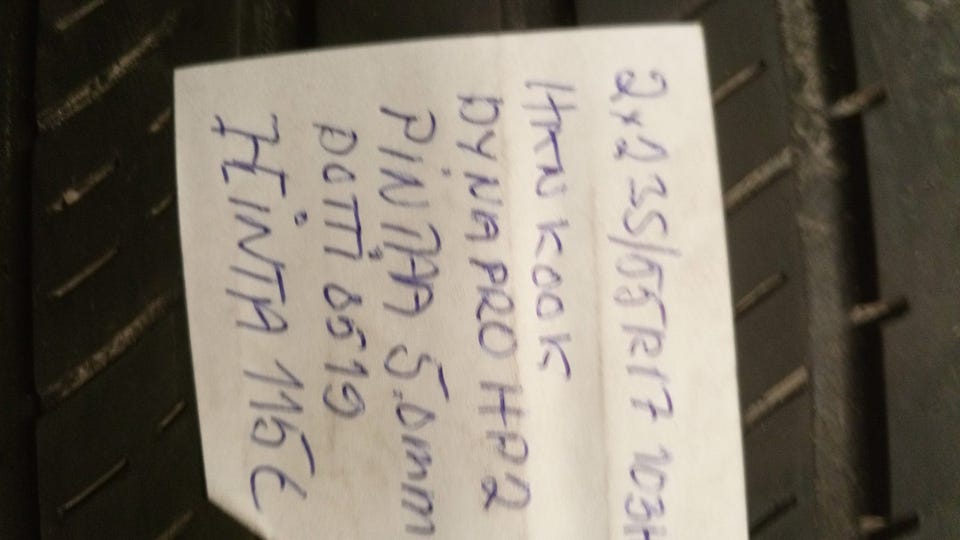 2x235/55R17 103H
HANKOOK
DYNAPRO HP2
PINTAA 5.0mm
DOTTI 0519
HINTA 115€